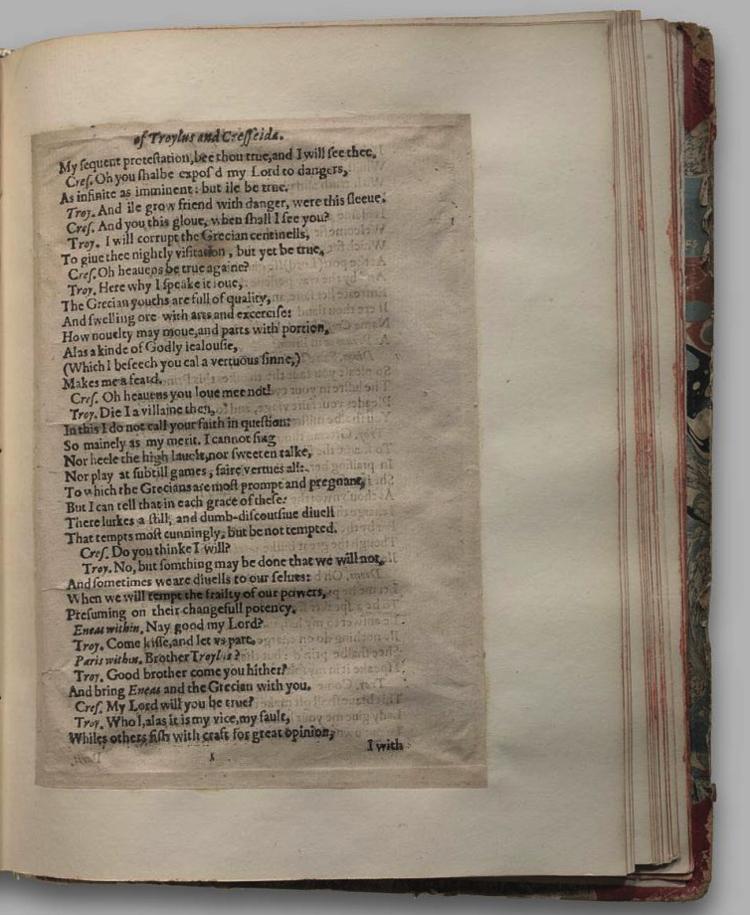 of Troylus and Cresseida.
My sequent protestation, bee thou true, and I will see thee.
Cres. Oh you shalbe expos'd my Lord to dangers,
As infinite as imminent: but ile be true.
Troy. And ile grow friend with danger, were this sleeue.
Cres. And you this gloue, when shall I see you?
Troy. I will corrupt the Grecian centinells,
To giue thee nightly visitation, but yet be true,
Cres. Oh heauens be true againe?
Troy. Here why I speake it loue,
The Grecian youths are full of quality,
And swelling ore with arts and excercise:
How nouelty may moue, and parts with portion,
Alas a kinde of Godly iealousie,
(Which I beseech you cal a vertuous sinne,)
Makes me a feard.
Cres. Oh heauens you loue mee not!
Troy. Die I a villaine then,
In this I do not call your faith in question:
So mainely as my merit. I cannot sing
Nor heele the high lauolt, nor sweeten talke,
Nor play at subtill games, faire vertues all:
To which the Grecians are most prompt and pregnant,
But I can tell that in each grace of these:
There lurkes a still, and dumb-discoursiue diuell
That tempts most cunningly, but be not tempted.
Cres. Do you thinke I will?
Troy. No, but somthing may be done that we will not,
And sometimes we are diuells to our selues:
When we will tempt the frailty of our powers,
Presuming on their changefull potency.
Eneas within. Nay good my Lord?
Troy. Come kisse, and let vs part.
Paris within. Brother Troylus?
Troy. Good brother come you hither?
And bring Eneas and the Grecian with you.
Cres. My Lord will you be true?
Troy. Who I, alas it is my vice, my fault,
Whiles others fish with craft for great opinion,
I with